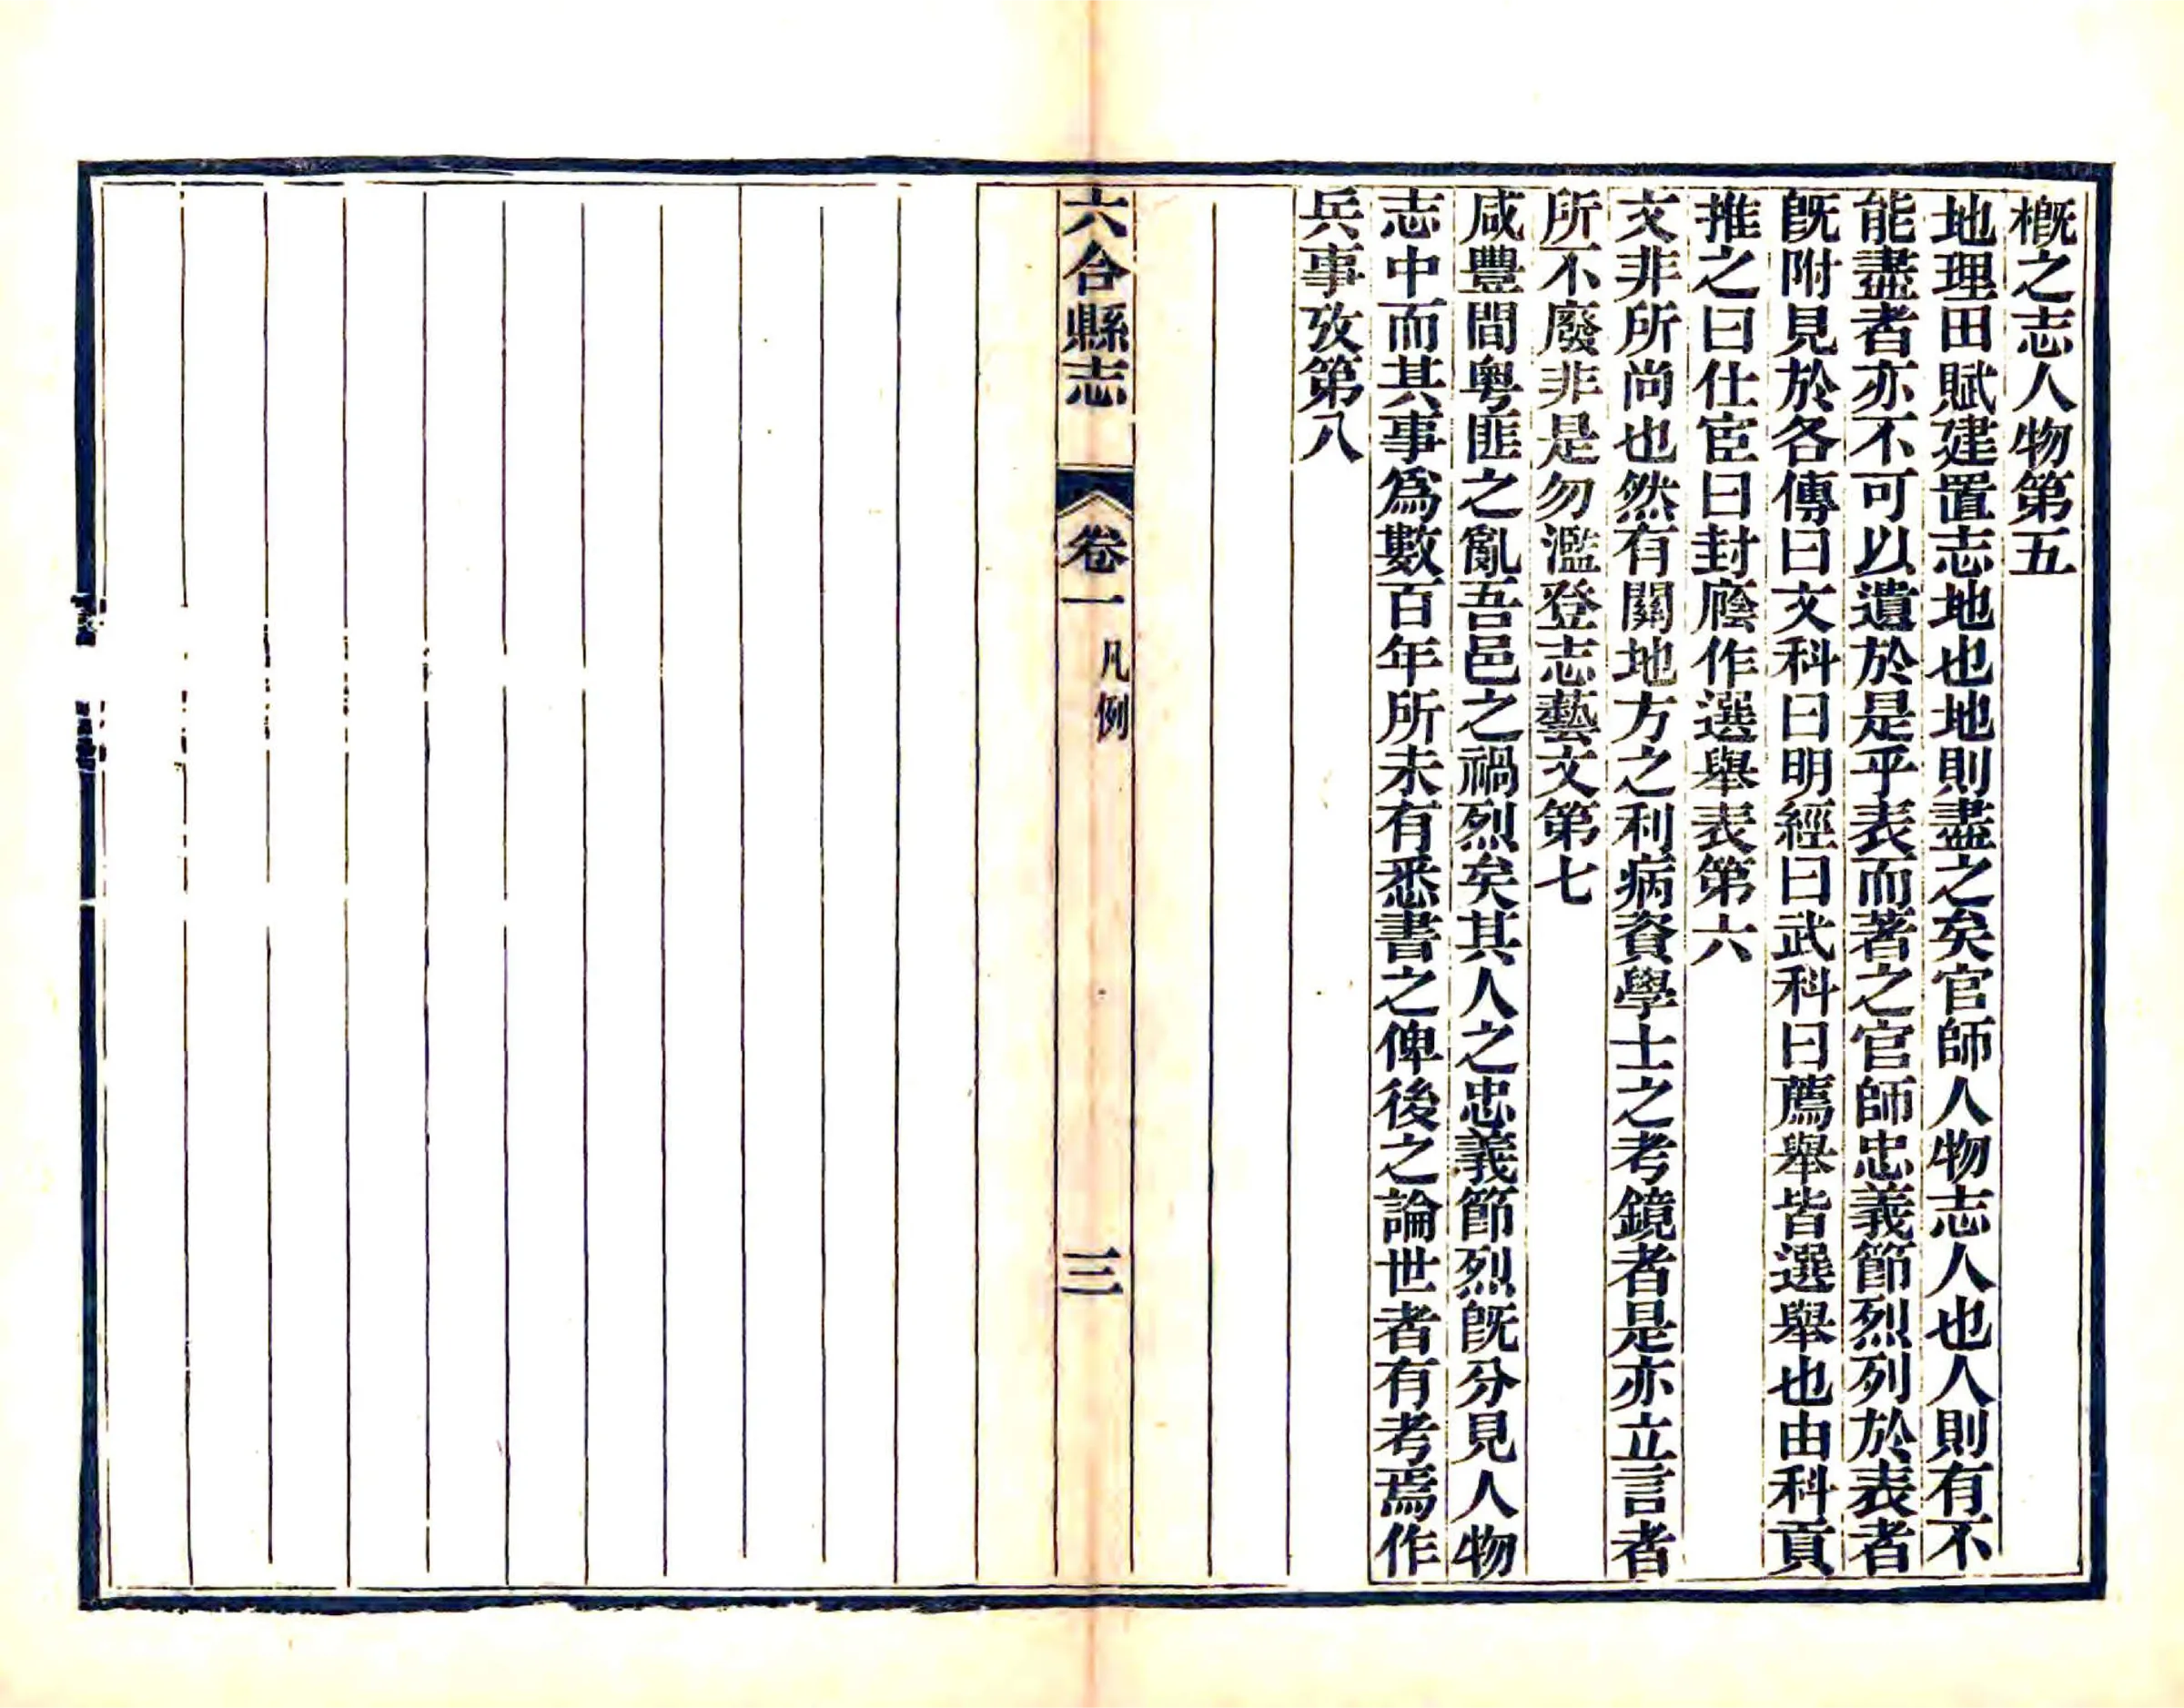 槪之志人物第五
地理田賦建置志地也地則盡之矣官師人物志人也人則有不
能盡者亦不可以遺於是乎表而著之官師忠義節烈列於表者
旣附見於各傳曰文科曰明經曰武科曰薦舉皆選舉也由科貢
推之曰仕宦曰封廕作選舉表第六
文非所尚也然有關地方之利病資學士之考鏡者是亦立言者
所不廢非是勿濫登志藝文第七
咸豐間粤匪之亂吾邑之禍烈矣其人之忠義節烈旣分見人物
志中而其事爲數百年所未有悉書之俾後之論世者有考焉作
兵事攷第八
六合縣志
卷一
凡例
三